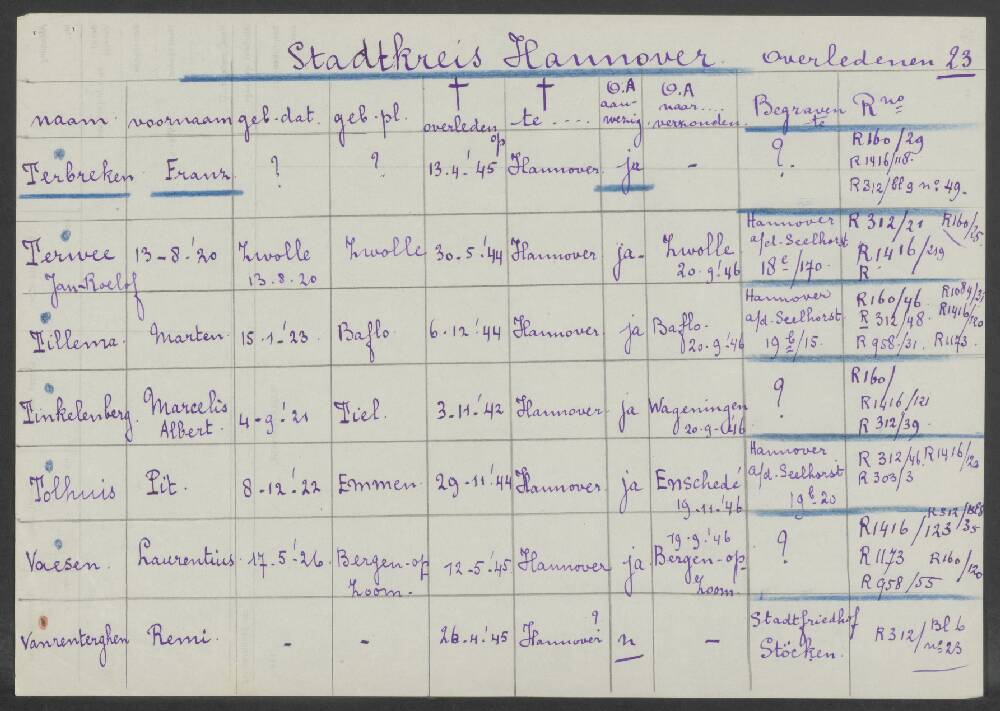 Stadtkreis Hannover. Overledenen 23
naam. voornaam geb-dat. geb.-pl. † overleden op † te .... O.A aanwezig. O.A naar.... verzonden. Begraven te R no
Terbreken Franz ? ? 13.4.'45 Hannover ja - ? R160/29
R1416/118.
R312/bl 9 no 49.
Terwee 13-8.'20 Zwolle Zwolle 30.5.'44 Hannover ja- Zwolle Hannover R 312/21 R160/25
Jan-Roelof 13.8.20 20.9.'46 a/d-Seelhorst R1416/219
18e/170. R
Tillema. Marten. 15.1.'23. Baflo. 6.12.'44 Hannover ja Baflo. Hannover R160/46 R1084/31
20.9.'46 a/d-Seelhorst. R312/48. R1416/120
19b/15. R958/31. R1173.
Tinkelenberg. Marcelis 4-9.'21 Tiel. 3.11.'42 Hannover. ja Wageningen ? R160/
Albert. 20.9-'46 R1416/121
R312/39.
Tolhuis Pit. 8-12.'22 Emmen. 29-11.'44 Hannover. ja Enschedé Hannover R312/46. R1416/
19.11.'46 a/d-Seelhorst R303/3
19b-20
Vaesen. Laurentius. 17.5.'26. Bergen-op Zoom. 12-5.'45 Hannover ja 19-9.'46 ? R1416/123 R312/
Bergen-op- R1173 R160/120
Zoom. R958/55
Vanrenterghen Remi. - - .4.'45 Hannover ? n - Stadtfriedhof R312/Bl 6
Stöcken. no 23